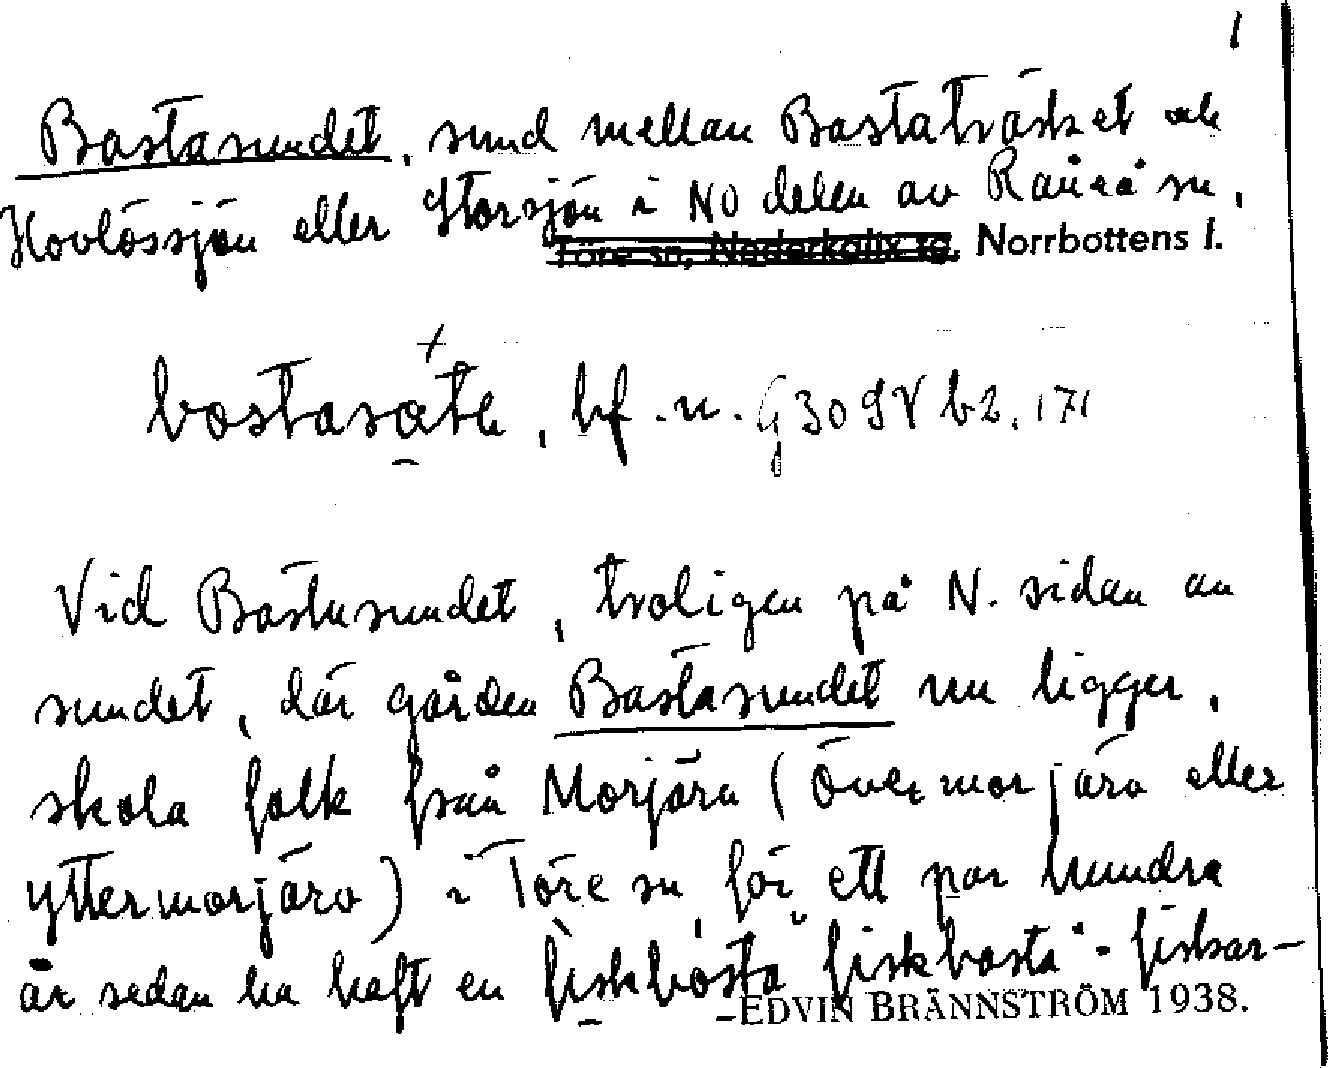 1
Bastasundet, sund mellan Bastaträsket och
Hovlössjön eller Storsjön i NO delen av Råneå sn,
Töre sn, Nederkalix tg, Norrbottens l.
bastasøtə, bf. n. G30SV b2, 171
Vid Bastusundet, troligen på N. sidan av
sundet, där gården Bastasundet nu ligger,
skola folk från Morjärv (Övermorjärv eller
Yttermorjärv) i Töre sn, för ett par hundra
år sedan ha haft en fiskbasta "fiskbasta" - fiskar-
EDVIN BRÄNNSTRÖM 1938.